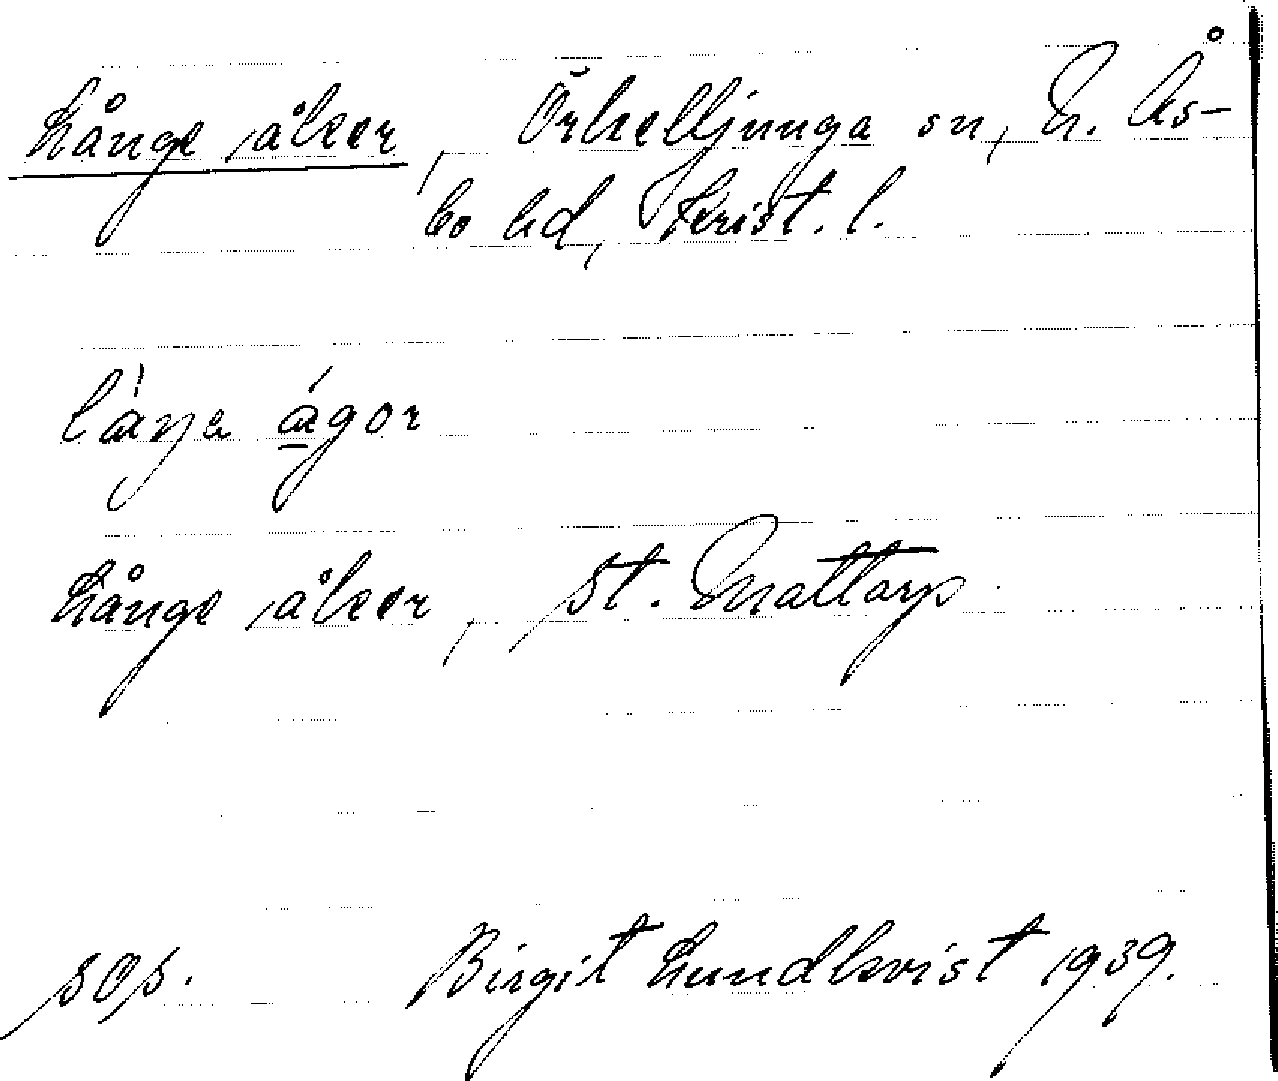 Långe åker, Örkelljunga sn, N. Ås-
bo hd, Krist. l.
låŋa ågor
Långe åker, St. Mattarp.
sos. Birgit Lundkvist 1939.